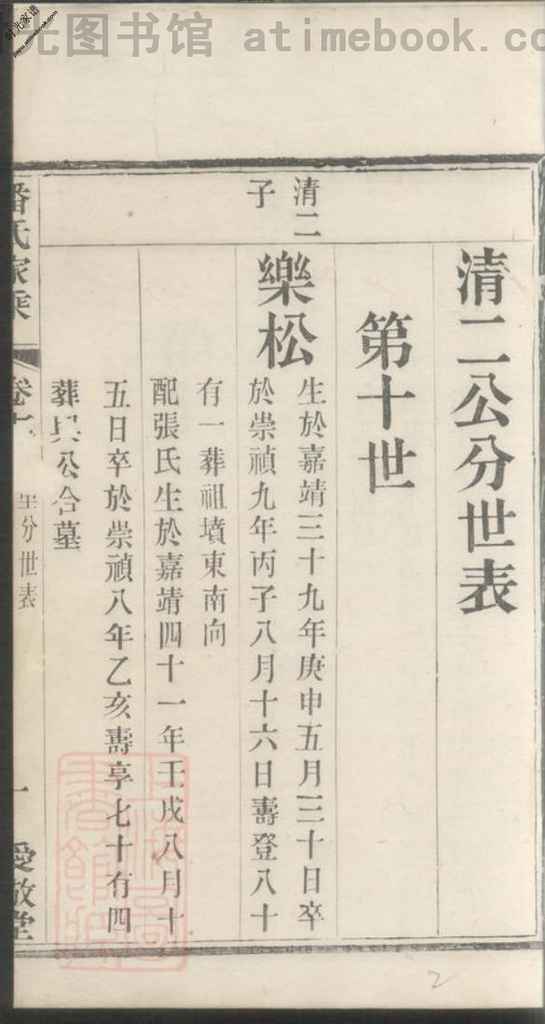 光图书馆 atimebook.com
时光家谱
清二公分世表
第十世
清二
子
樂松
生於嘉靖三十九年庚申五月三十日卒
於崇禎九年丙子八月十六日壽登八十
有一葬祖墳東南向
配張氏生於嘉靖四十一年壬戌八月十
五日卒於崇禎八年乙亥壽享七十有四
葬與公合墓
潘氏家乘
卷七
分世表
一
愛敬堂
2